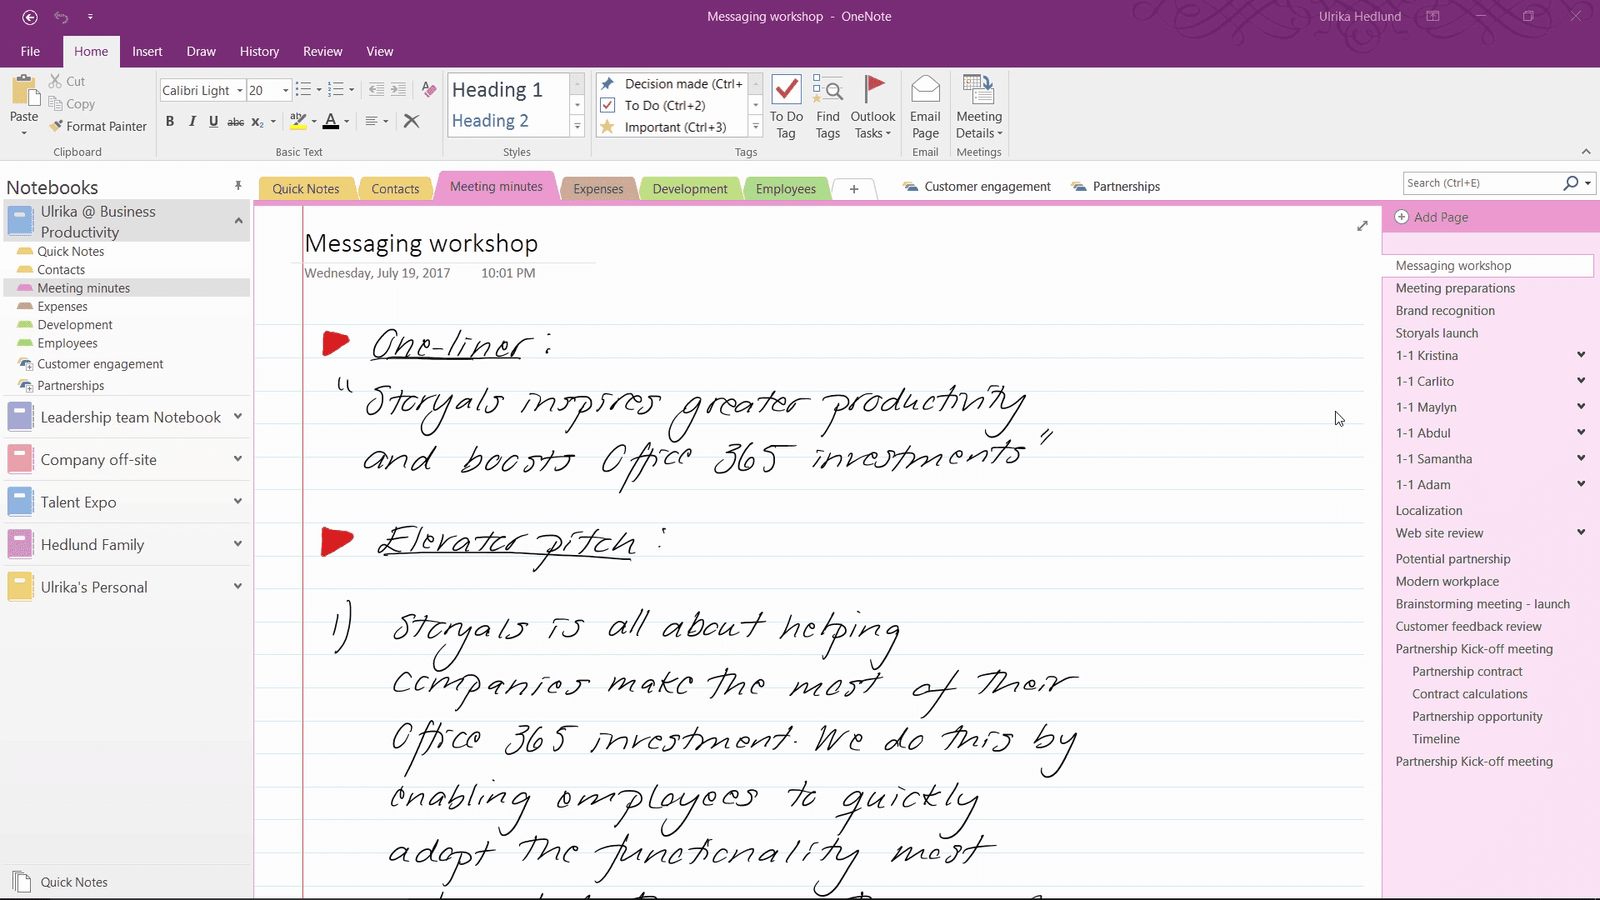 Messaging workshop - OneNote
Ulrika Hedlund
File Home Insert Draw History Review View
Paste
Cut
Copy
Format Painter
Clipboard
Calibri Light 20
B I U abc X₂ aby A
Basic Text
Heading 1
Heading 2
Styles
Decision made (Ctrl+
To Do (Ctrl+2)
Important (Ctrl+3)
To Do Tag
Find Tags
Outlook Tasks
Tags
Email Page
Email
Meeting Details
Meetings
Notebooks
Ulrika @ Business
Productivity
Quick Notes
Contacts
Meeting minutes
Expenses
Development
Employees
Customer engagement
Partnerships
Leadership team Notebook
Company off-site
Talent Expo
Hedlund Family
Ulrika's Personal
Quick Notes
Quick Notes Contacts Meeting minutes Expenses Development Employees + Customer engagement Partnerships
Search (Ctrl+E)
Messaging workshop
Wednesday, July 19, 2017 10:01 PM
One-liner :
"Storyals inspires greater productivity
and boosts Office 365 investments"
Elevator pitch :
1) Storyals is all about helping
companies make the most of their
Office 365 investment. We do this by
enabling employees to quickly
adopt the functionality most
Add Page
Messaging workshop
Meeting preparations
Brand recognition
Storyals launch
1-1 Kristina
1-1 Carlito
1-1 Maylyn
1-1 Abdul
1-1 Samantha
1-1 Adam
Localization
Web site review
Potential partnership
Modern workplace
Brainstorming meeting - launch
Customer feedback review
Partnership Kick-off meeting
Partnership contract
Contract calculations
Partnership opportunity
Timeline
Partnership Kick-off meeting